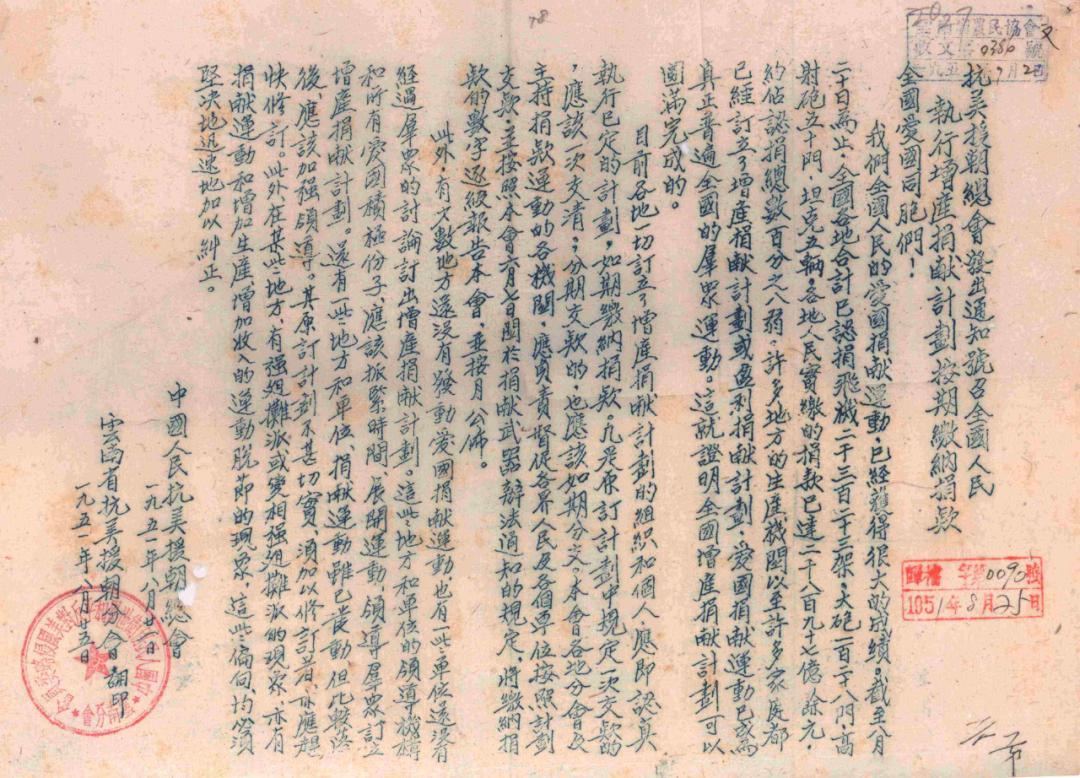 抗美援朝總會發出通知號召全國人民
執行增産捐献計劃按期繳納捐款
全國愛國同胞們！
我們全國人民的愛國捐献運動，已經獲得很大的成績。截至八月
二十日為止，全國各地合計已認捐飛機二千三百二十三架，大砲一百六八門，高
射砲五十門，坦克五輛，各地人民實繳的捐款已達二千八百九十七億餘元，
約佔認捐總數百分之八弱。許多地方的生産機關以至許多家庭都
已經訂立了增産捐献計劃或盈利捐献計劃，愛國捐献運動已成為
真正普遍全國的羣眾運動。這就證明全國增産捐献計劃可以
圓滿完成的。
目前各地一切訂立了增産捐献計劃的組織和個人應即認真
執行已定的計劃，如期繳納捐款。凡是原訂計劃中規定一次交款的
，應該一次交清；分期交款的，也應該如期分交。本會各地分會及
主持捐款運動的各機關，應負責督促各界人民及各個單位按照計劃
交款，並按照本會六月七日關於捐献武器辦法通知的規定，將繳納捐
款的數字逐級報告本會，並按月公佈。
此外，有少數地方還沒有發動愛國捐献運動，也有一些單位還沒有
經過羣眾的討論訂出增産捐献計劃。這些地方和單位的領導機構
和所有愛國積極份子，應該抓緊時間，展開運動，領導羣眾訂立
增産捐献計劃。還有一些地方和單位，捐献運動雖已發動，但比較落
後，應該加强領導。其原訂計劃不甚切實，須加以修訂者，亦應趕
快修訂。此外，在某些地方，有强迫攤派或變相强迫攤派的現象，亦有
捐献運動和增加生産，增加收入的運動脫節的現象，這些偏向，均必須
堅决地迅速地加以糾正。
中國人民抗美援朝總會
一九五一年八月
雲南省抗美援朝分會 翻印
一九五一年八月五日
農民協會
收文 0386 號
歸檔 字第0090號
1951年8月25日
78